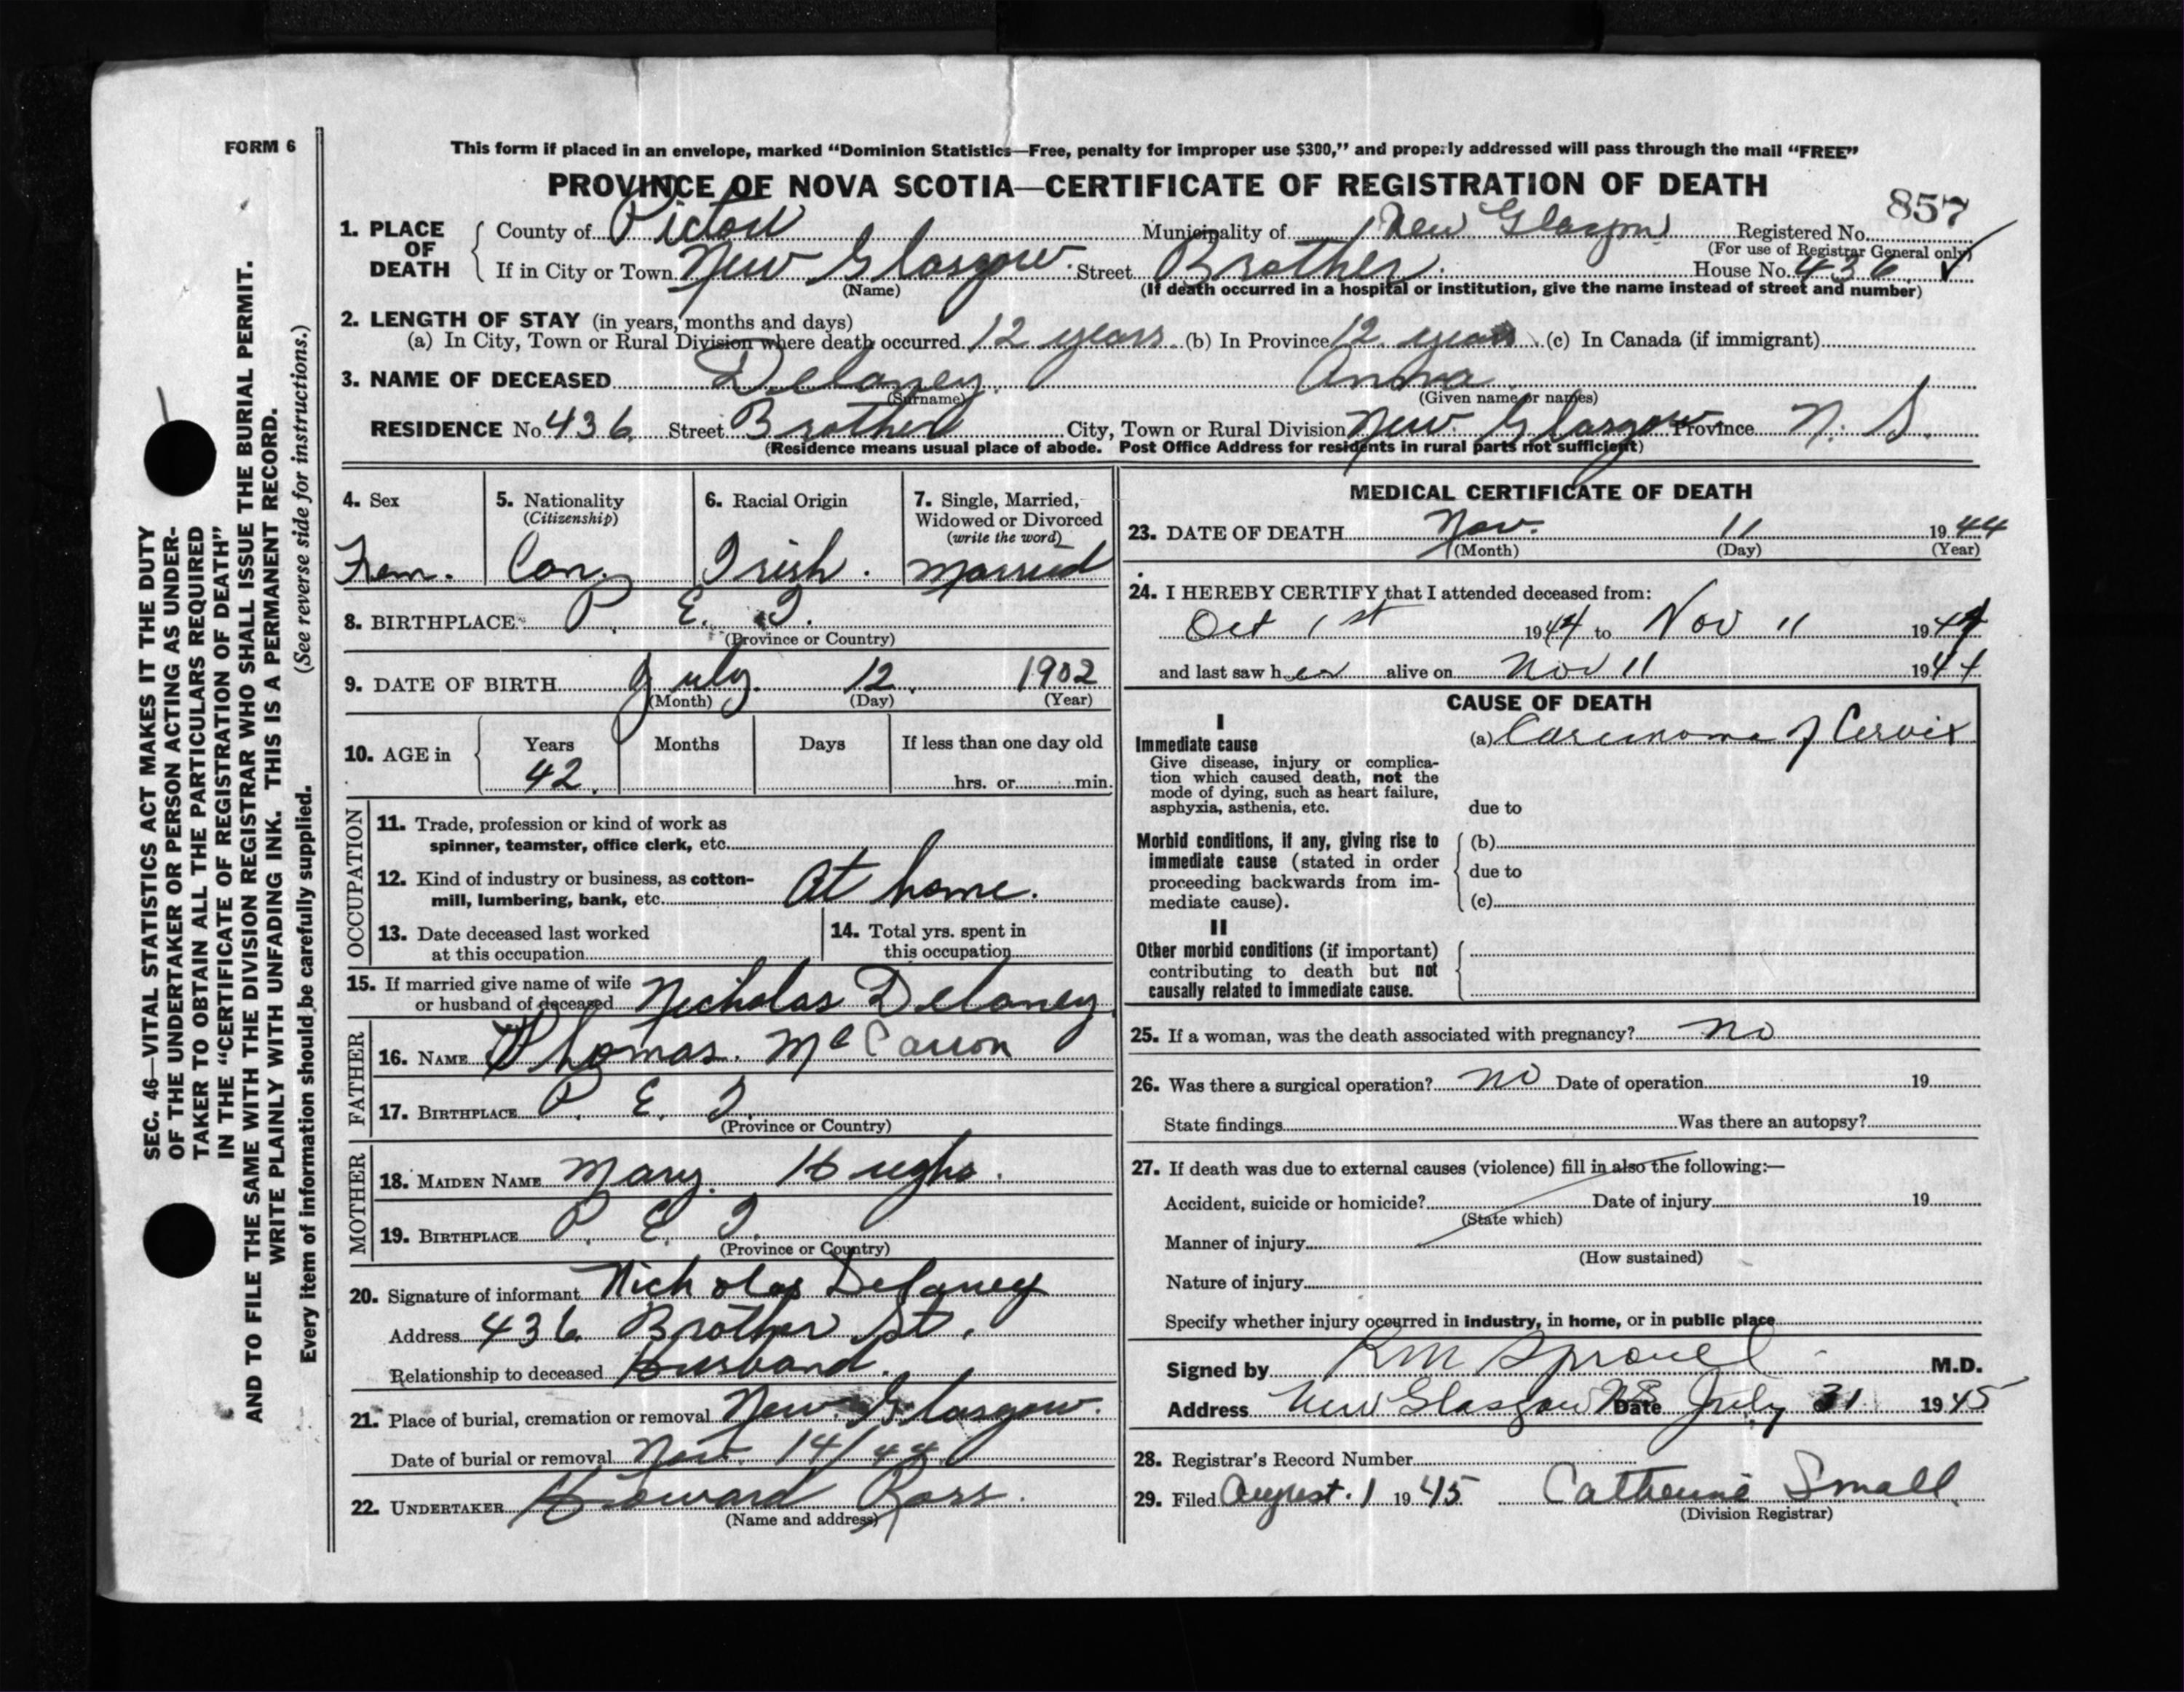 FORM 6
This form if placed in an envelope, marked “Dominion Statistics—Free, penalty for improper use $300,” and properly addressed will pass through the mail “FREE”
PROVINCE OF NOVA SCOTIA—CERTIFICATE OF REGISTRATION OF DEATH
857
1. PLACE OF DEATH County of Pictou Municipality of New Glasgow Registered No.
(For use of Registrar General only)
If in City or Town New Glasgow Street Brother House No. 436 ✓
(Name) (If death occurred in a hospital or institution, give the name instead of street and number)
2. LENGTH OF STAY (in years, months and days)
(a) In City, Town or Rural Division where death occurred 12 years (b) In Province 12 years (c) In Canada (if immigrant)
3. NAME OF DECEASED Delaney Anna
(Surname) (Given name or names)
RESIDENCE No. 436 Street Brother City, Town or Rural Division New Glasgow Province N. S.
(Residence means usual place of abode. Post Office Address for residents in rural parts not sufficient)
4. Sex 5. Nationality (Citizenship) 6. Racial Origin 7. Single, Married, Widowed or Divorced (write the word)
Fem. Can. Irish. Married
8. BIRTHPLACE P. E. I.
(Province or Country)
9. DATE OF BIRTH July 12 1902
(Month) (Day) (Year)
10. AGE in Years Months Days If less than one day old
42 hrs. or min.
OCCUPATION
11. Trade, profession or kind of work as
spinner, teamster, office clerk, etc.
12. Kind of industry or business, as cotton-
mill, lumbering, bank, etc. At home.
13. Date deceased last worked
at this occupation
14. Total yrs. spent in
this occupation
15. If married give name of wife
or husband of deceased Nicholas Delaney
FATHER
16. NAME Thomas McCarron
17. BIRTHPLACE P. E. I.
(Province or Country)
MOTHER
18. MAIDEN NAME Mary Hughs.
19. BIRTHPLACE P. E. I.
(Province or Country)
20. Signature of informant Nicholas Delaney
Address 436 Brother St.
Relationship to deceased Husband.
21. Place of burial, cremation or removal New Glasgow.
Date of burial or removal Nov. 14/44
22. UNDERTAKER Howard Ross.
(Name and address)
MEDICAL CERTIFICATE OF DEATH
23. DATE OF DEATH Nov. 11 1944
(Month) (Day) (Year)
24. I HEREBY CERTIFY that I attended deceased from:
Oct 1st 1944 to Nov 11 1944
and last saw her alive on Nov 11 1944
CAUSE OF DEATH
I
Immediate cause (a) Carcinoma of Cervix
Give disease, injury or complica-
tion which caused death, not the
mode of dying, such as heart failure,
asphyxia, asthenia, etc. due to
Morbid conditions, if any, giving rise to (b)
immediate cause (stated in order
proceeding backwards from im- due to
mediate cause). (c)
II
Other morbid conditions (if important)
contributing to death but not
causally related to immediate cause.
25. If a woman, was the death associated with pregnancy? No
26. Was there a surgical operation? No Date of operation 19
State findings Was there an autopsy?
27. If death was due to external causes (violence) fill in also the following:—
Accident, suicide or homicide? Date of injury 19
(State which)
Manner of injury
(How sustained)
Nature of injury
Specify whether injury occurred in industry, in home, or in public place
Signed by R M Sproull M.D.
Address New Glasgow NS Date July 31 1945
28. Registrar's Record Number
29. Filed August. 1 1945 Catherine Small
(Division Registrar)
SEC. 46—VITAL STATISTICS ACT MAKES IT THE DUTY
OF THE UNDERTAKER OR PERSON ACTING AS UNDER-
TAKER TO OBTAIN ALL THE PARTICULARS REQUIRED
IN THE “CERTIFICATE OF REGISTRATION OF DEATH”
AND TO FILE THE SAME WITH THE DIVISION REGISTRAR WHO SHALL ISSUE THE BURIAL PERMIT.
WRITE PLAINLY WITH UNFADING INK. THIS IS A PERMANENT RECORD.
Every item of information should be carefully supplied. (See reverse side for instructions.)